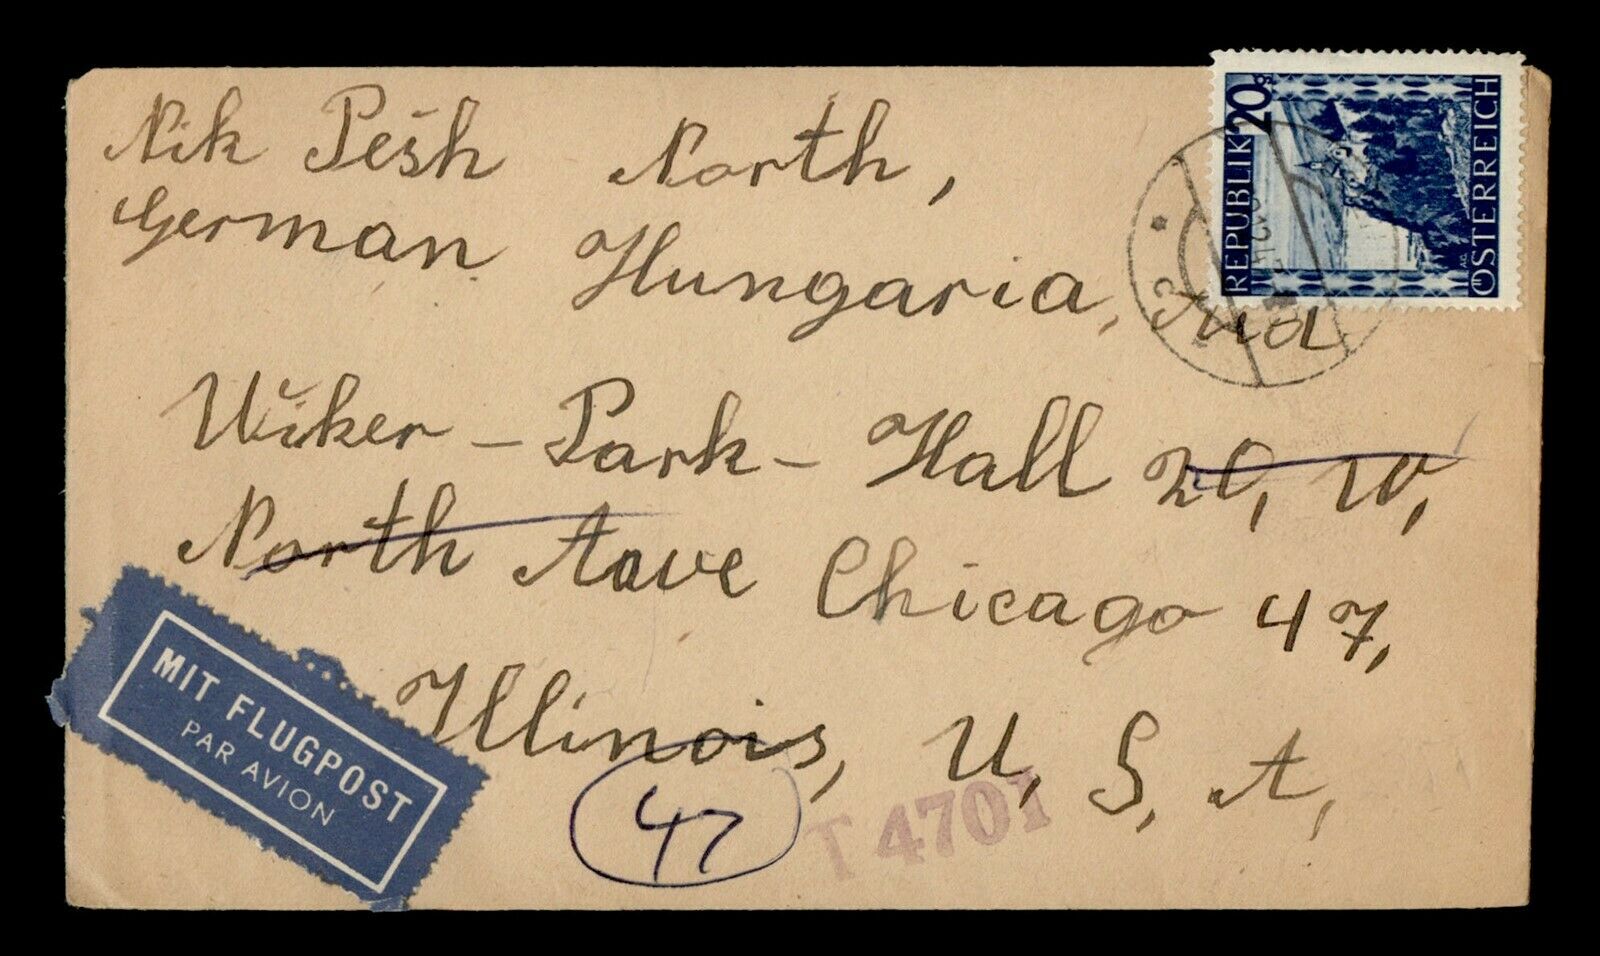 Nik Pešh North,
German Hungaria, And
Wiker-Park-Hall 20, W,
North Aave Chicago 47,
Illinois, U, S, A,
47
T 4701
MIT FLUGPOST
PAR AVION
REPUBLIK 20 g
ÖSTERREICH